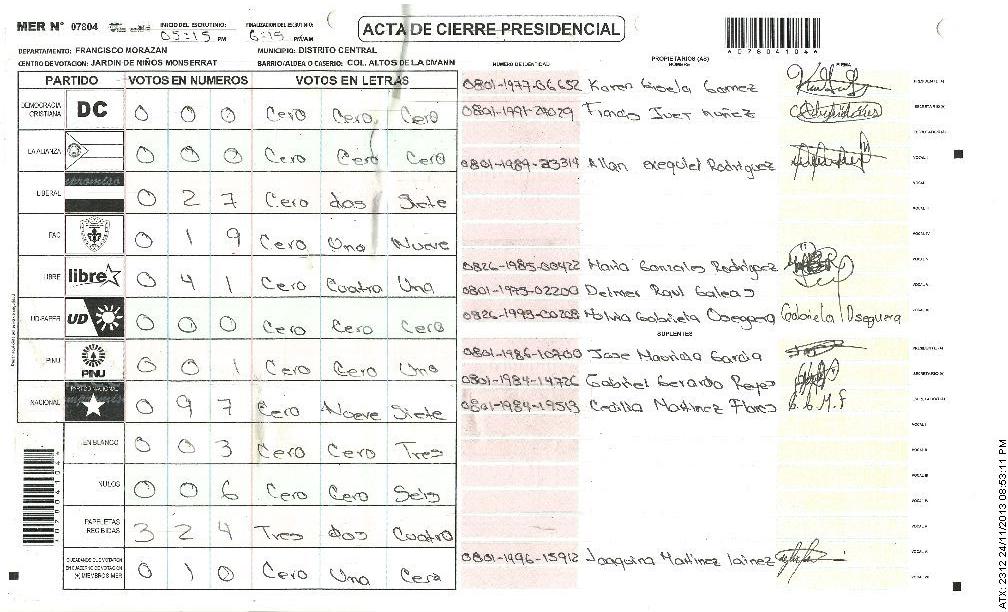 MER Nº 07804 INICIO DEL ESCRUTINIO: 05:15 PM FINALIZACION DEL ESCRUTINIO: 6:15 PM/AM ACTA DE CIERRE PRESIDENCIAL
DEPARTAMENTO: FRANCISCO MORAZAN MUNICIPIO: DISTRITO CENTRAL
CENTRO DE VOTACION: JARDIN DE NIÑOS MONSERRAT BARRIO/ALDEA O CASERIO: COL. ALTOS DE LA
PARTIDO VOTOS EN NUMEROS VOTOS EN LETRAS
NUMERO DE IDENTIDAD PROPIETARIOS (AS) NOMBRE FIRMA
DEMOCRACIA CRISTIANA DC 0 0 0 Cero Cero Cero
LA ALIANZA 0 0 0 Cero Cero Cero
LIBERAL 0 2 7 Cero dos Siete
0 1 9 Cero Uno Nueve
LIBRE libre 0 4 1 Cero Cuatro Uno
UD-FAPER UD 0 0 0 Cero Cero Cero
PINU PINU 0 0 1 Cero Cero Uno
NACIONAL PARTIDO NACIONAL 0 9 7 Cero Nueve Siete
EN BLANCO 0 0 3 Cero Cero Tres
NULOS 0 0 6 Cero Cero Seis
PAPELETAS RECIBIDAS 3 2 4 Tres dos Cuatro
CIUDADANOS QUE VOTARON EN CUADERNO DE VOTACION (+) MIEMBROS MER 0 1 0 Cero Uno Cero
0801-1977-06652 Karen Gisela Gomez
0801-1991-29029
Allan exequiel Rodriguez
0826-1985-00422 Maria Gonzales Rodriguez
0801-1975-02200 Delmer Raul Galeas
Gabriela Gabriela Oseguera
SUPLENTES
0801-1986-10700 Jose Mauricio Garcia
0801-1984-14726 Gabriel Gerardo Reyes
0801-1984-19513 Cecilia Martinez Flores
0801-1996-15912 Joaquina Martinez lainez
07804104
ATX: 2312 24/11/2013 08:53:11 PM